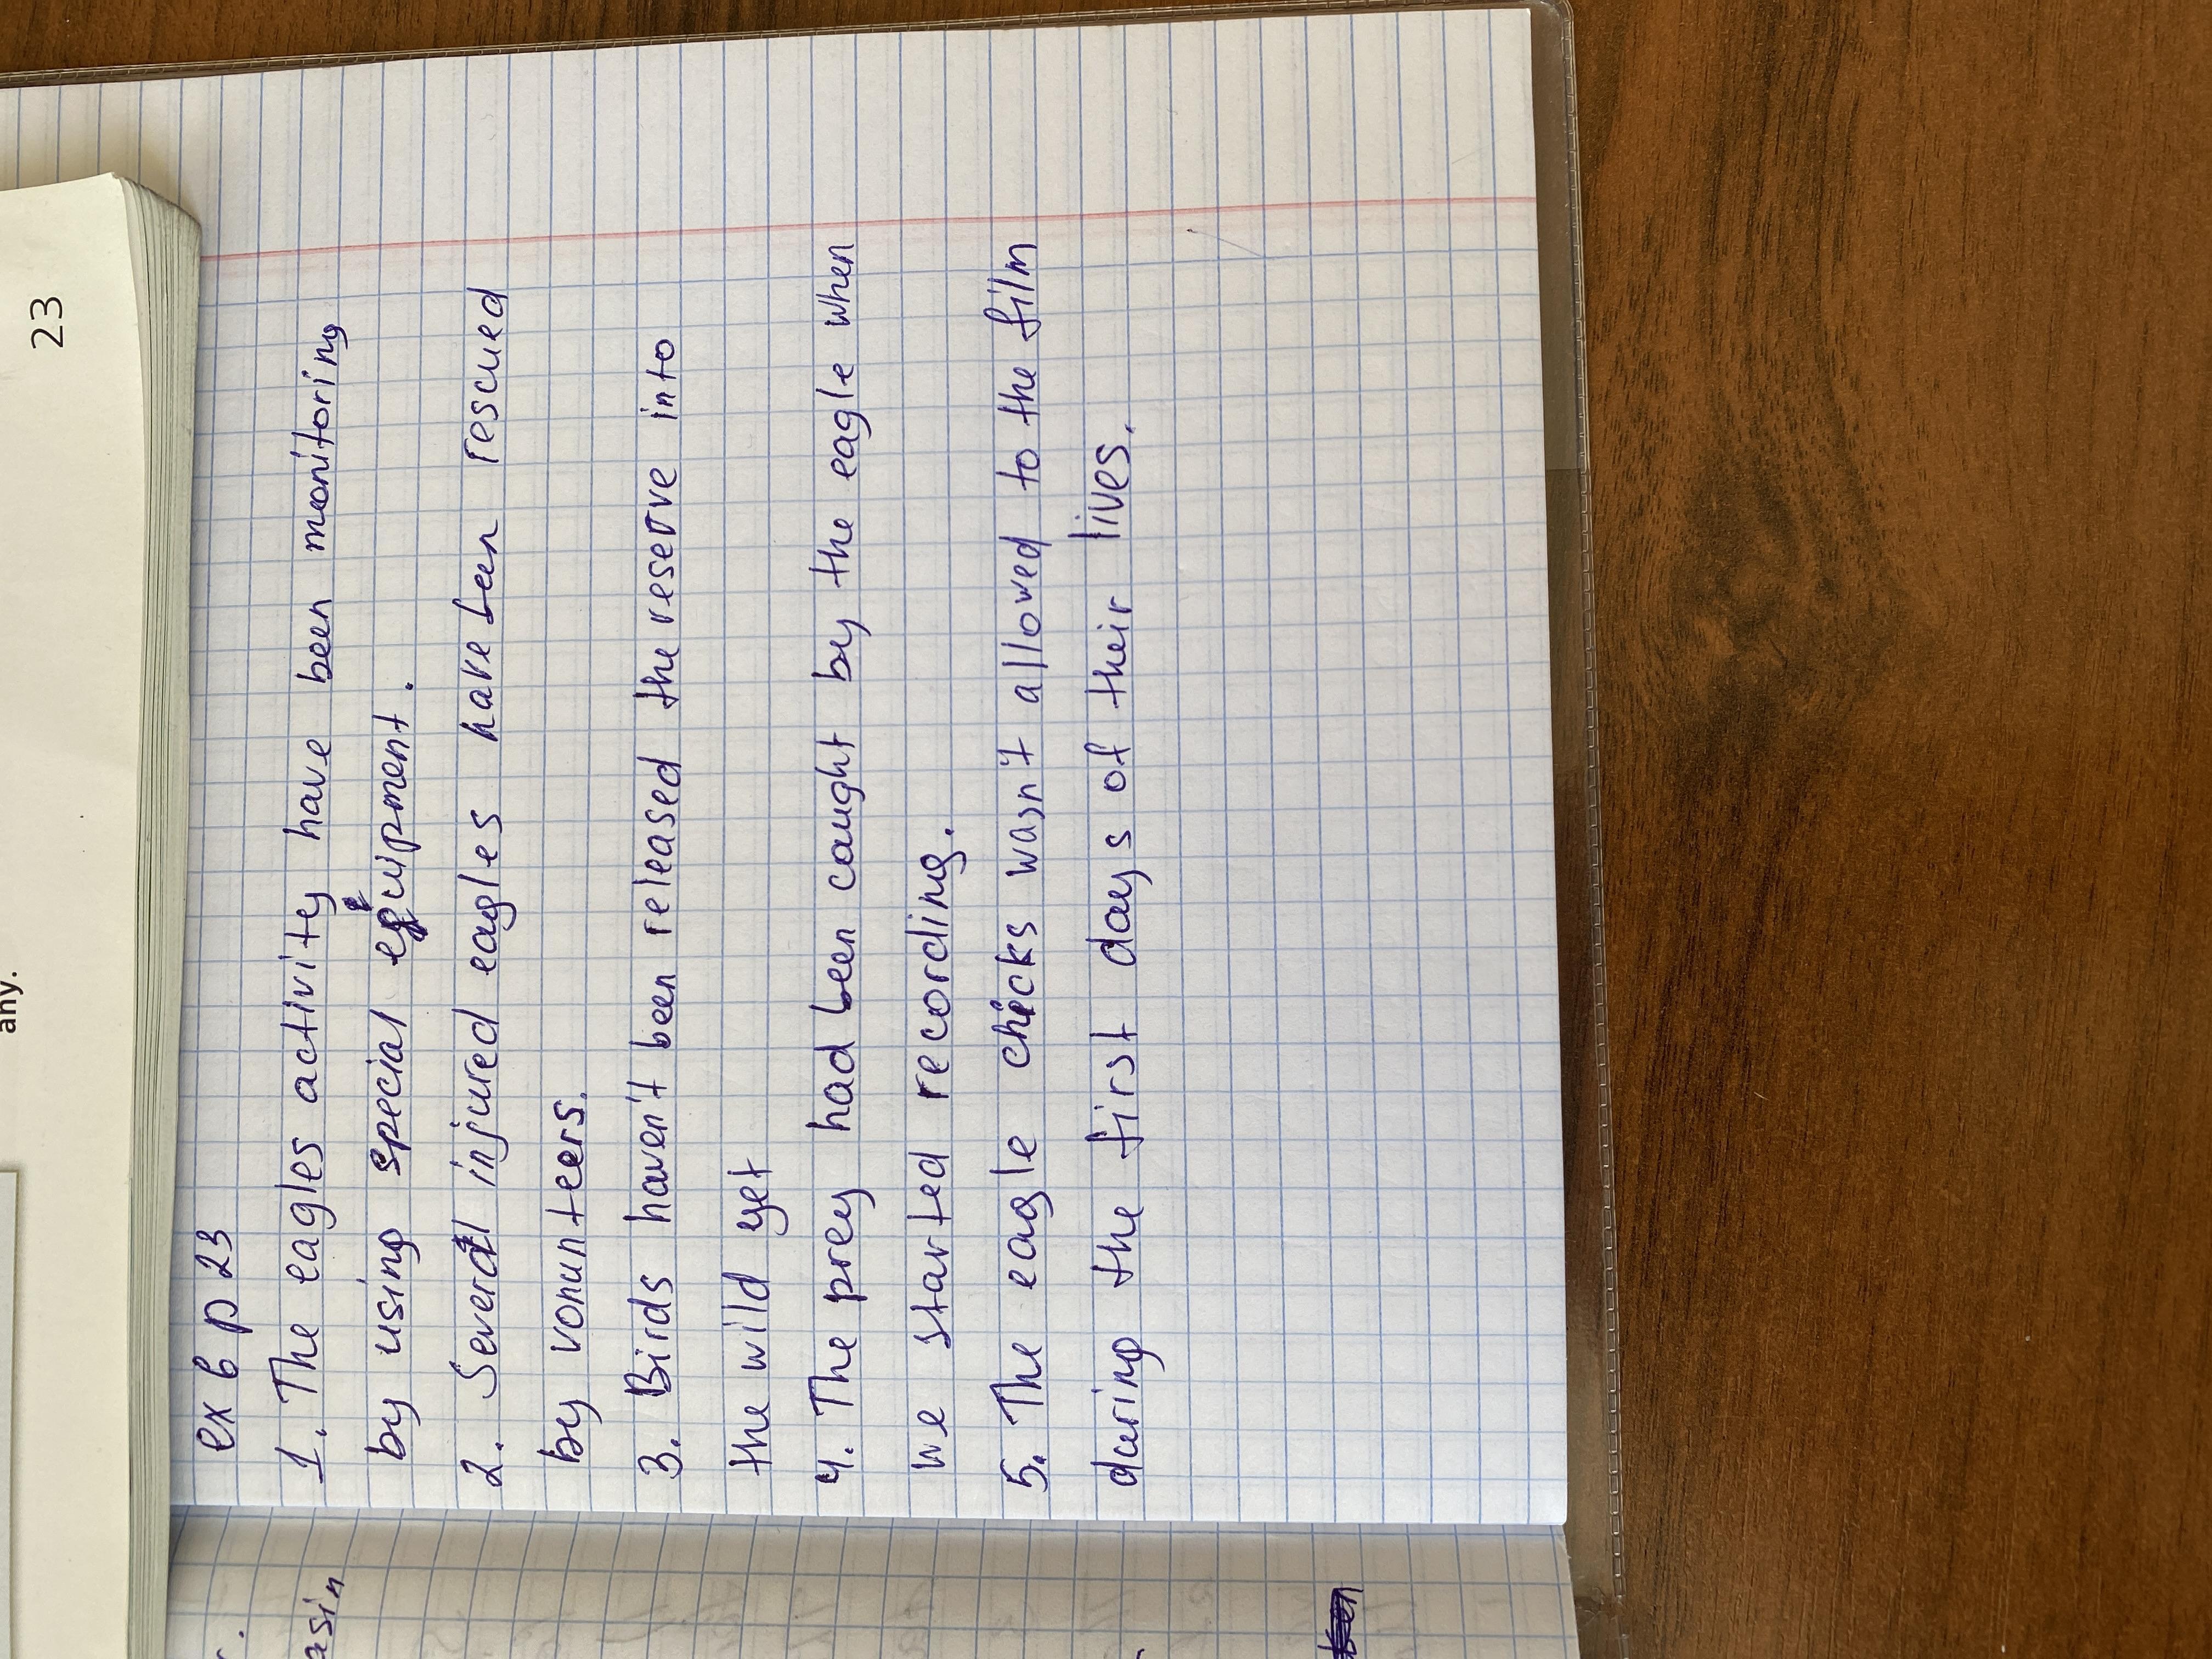 23
any.
ex 6 p 23
1. The eagles activity have been monitoring
by using special equipment.
2. Several injured eagles have been rescued
by vonunteers.
3. Birds haven't been released the reserve into
the wild yet
4. The prey had been caught by the eagle when
we started recording.
5. The eagle chicks wasn't allowed to the film
during the first days of their lives.
asin